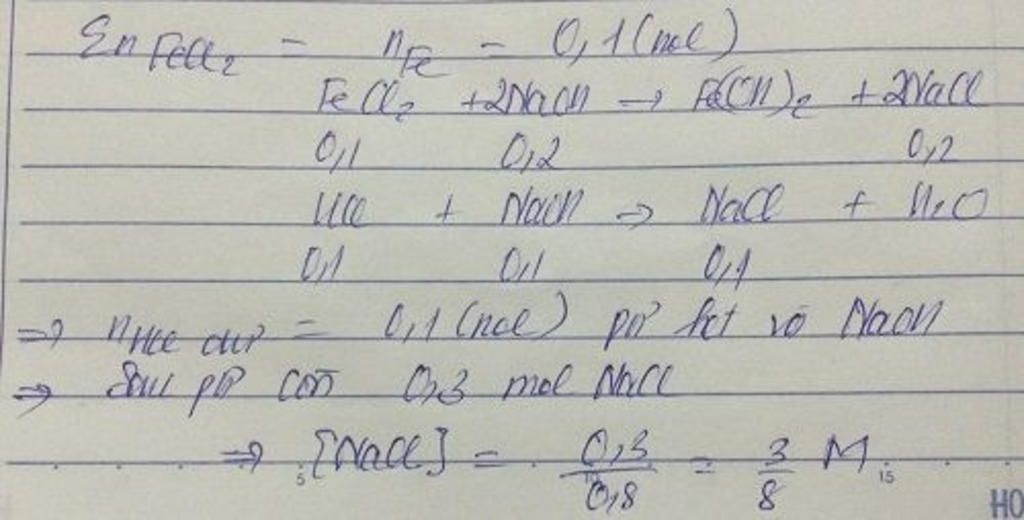 Σn FeCl₂ = n Fe = 0,1 (mol)
FeCl₂ + 2NaOH → Fe(OH)₂ + 2NaCl
0,1 0,2 0,2
HCl + NaOH → NaCl + H₂O
0,1 0,1 0,1
⇒ n HCl dư = 0,1 (mol) pứ hết với NaOH
⇒ Sau pứ còn 0,3 mol NaCl
⇒ [NaCl] = 0,3/0,8 = 3/8 M
5 10 15
HO